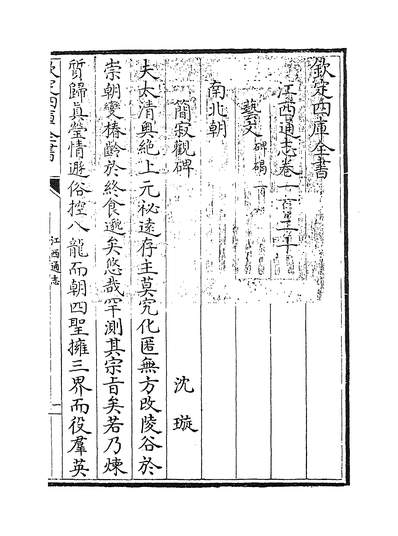 欽定四庫全書
江西通志卷一百二十
藝文 碑碣一
南北朝
簡寂觀碑 沈璇
夫太清輿絕上元祕遠存主莫究化匿無方改陵谷於
崇朝變椿齡於終食邈矣悠哉罕測其宗旨矣若乃煉
質歸眞瑩情遊俗控八龍而朝四聖擁三界而役羣英
欽定四庫全書
江西通志
一